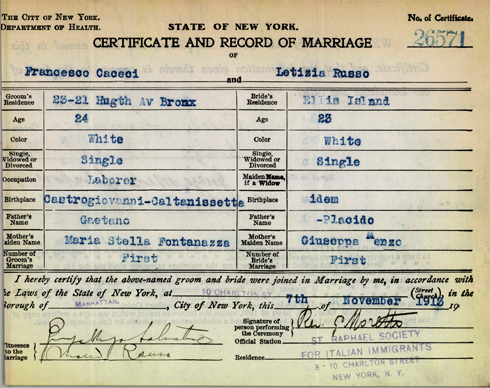 THE CITY OF NEW YORK.
DEPARTMENT OF HEALTH.
STATE OF NEW YORK.
No. of Certificate.
26571
CERTIFICATE AND RECORD OF MARRIAGE
OF
Francesco Cacoci and Letizia Russo
Groom's Residence 23-21 Hugth Av Bronx Bride's Residence Ellis Island
Age 24 Age 23
Color White Color White
Single, Widowed or Divorced Single Single, Widowed or Divorced Single
Occupation Laborer Maiden Name, if a Widow
Birthplace Castrogiovanni-Caltanissetta Birthplace idem
Father's Name Gaetano Father's Name -Placido
Mother's Maiden Name Maria Stella Fontanazza Mother's Maiden Name Giuseppa Menzo
Number of Groom's Marriage First Number of Bride's Marriage First
I hereby certify that the above-named groom and bride were joined in Marriage by me, in accordance with
the Laws of the State of New York, at 10 CHARLTON ST (Street Church), in the
Borough of MANHATTAN, City of New York, this 7th of November 191
Signature of person performing the Ceremony Rev. G Moretto
Witnesses to the Marriage
Official Station ST. RAPHAEL SOCIETY
FOR ITALIAN IMMIGRANTS
Residence 8 - 10 CHARLTON STREET
NEW YORK, N. Y.